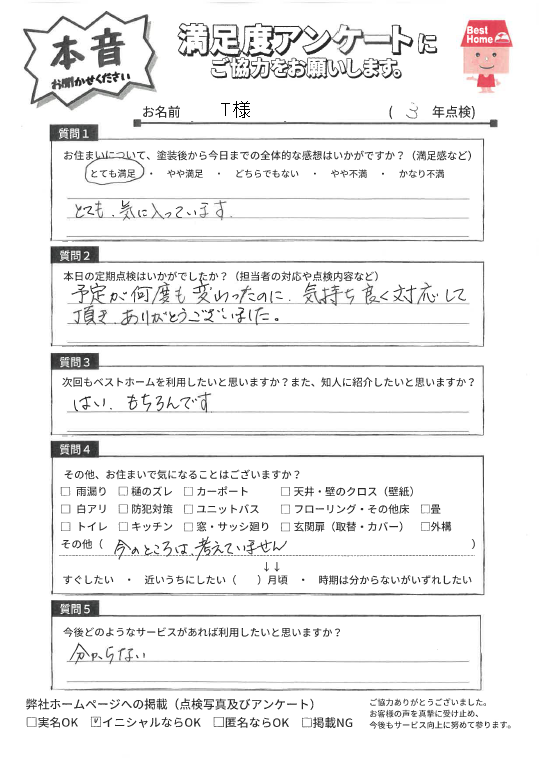 本音
お聞かせください
満足度アンケートに
ご協力をお願いします。
Best
Home
お名前 T様 ( 3 年点検)
質問1
お住まいについて、塗装後から今日までの全体的な感想はいかがですか?(満足感など)
とても満足 ・ やや満足 ・ どちらでもない ・ やや不満 ・ かなり不満
とても、気に入っています。
質問2
本日の定期点検はいかがでしたか?(担当者の対応や点検内容など)
予定が何度も変わったのに、気持ち良く対応して
頂き、ありがとうございました。
質問3
次回もベストホームを利用したいと思いますか?また、知人に紹介したいと思いますか?
はい、もちろんです
質問4
その他、お住まいで気になることはございますか?
□ 雨漏り □ 樋のズレ □ カーポート □ 天井・壁のクロス(壁紙)
□ 白アリ □ 防犯対策 □ ユニットバス □ フローリング・その他床 □畳
□ トイレ □ キッチン □ 窓・サッシ廻り □ 玄関扉(取替・カバー) □外構
その他( 今のところは、考えていません )
↓↓
すぐしたい ・ 近いうちにしたい( )月頃 ・ 時期は分からないがいずれしたい
質問5
今後どのようなサービスがあれば利用したいと思いますか?
分からない
弊社ホームページへの掲載(点検写真及びアンケート)
□実名OK ☑イニシャルならOK □匿名ならOK □掲載NG
ご協力ありがとうございました。
お客様の声を真摯に受け止め、
今後もサービス向上に努めて参ります。